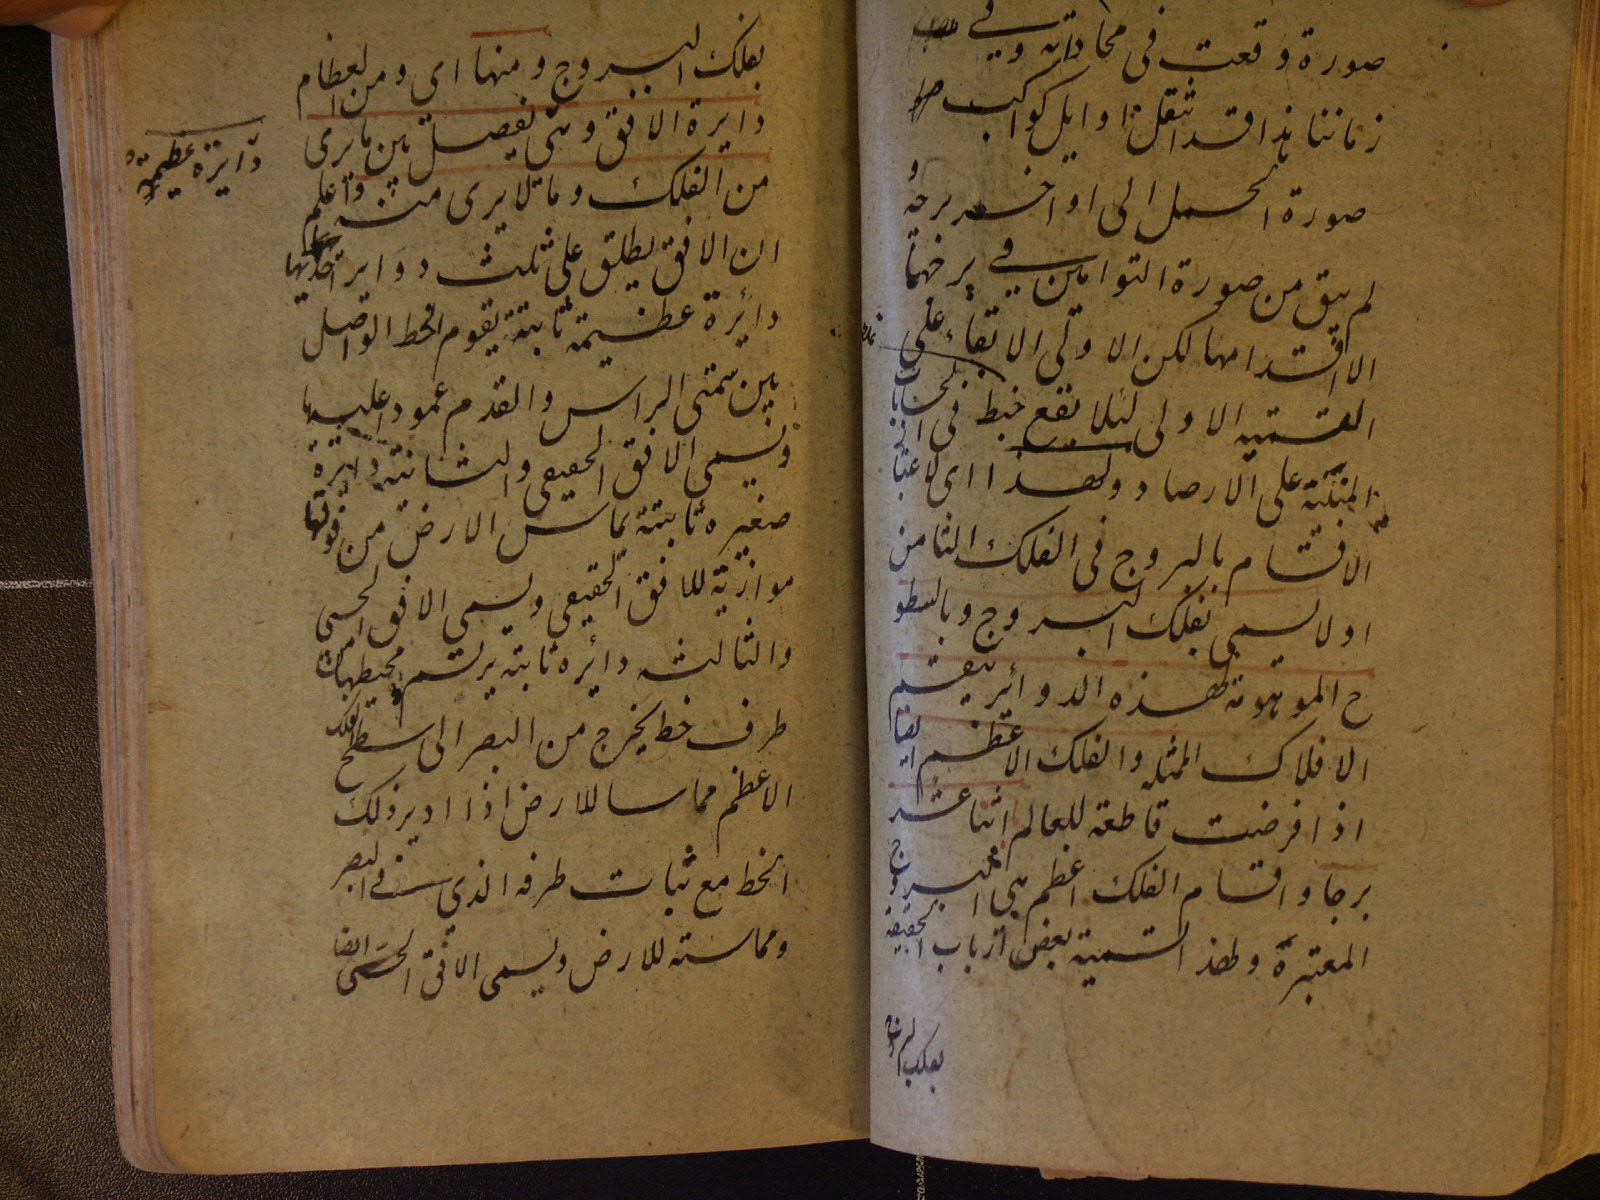 صورة وقعت فى محاذاته وفي
زماننا هذا قد انتقل اوايل كواكب
صورة الحمل الى اواخر برجه و
لم يبق من صورة التوامين في برجهما
الا اقدامها لكن الاولى الابقاء على
القسمة الاولى لئلا يقع خبط فى الحسابات
المبنية على الارصاد ولهذا اى لاعتبار
الاقسام بالبروج فى الفلك الثامن
اولا يسمى بفلك البروج وبالسطو
ح الموهومة لهذه الدوائر ينقسم
الافلاك الممثلة والفلك الاعظم ايضا
اذا فرضت قاطعة للعالم اثنا عشر
برجا واقسام الفلك اعظم هى البروج
المعتبرة ولهذا التسمية بعض ارباب الحقيقة
بفلك البروج
بفلك البروج ومنها اى ومن العظام
دايرة الافق وهى تفصل بين ما يرى
من الفلك وما لا يرى منه واعلم
ان الافق يطلق على ثلث دواير احديها
دائرة عظيمة ثابتة يقوم الخط الواصل
بين سمتى الراس والقدم عمودا عليها
ويسمى الافق الحقيقى والثانية دايرة
صغيره ثابتة تماس الارض من فوقها
موازية للافق الحقيقى ويسمى الافق الحسى
والثالثه دائره ثابته يرتسم محيطها من
طرف خط يخرج من البصر الى سطح الفلك
الاعظم مماسا للارض اذا ادير ذلك
الخط مع ثبات طرفه الذي في البصر
ومماسته للارض ويسمى الافق الحسى ايضا
دايرة عظيمة